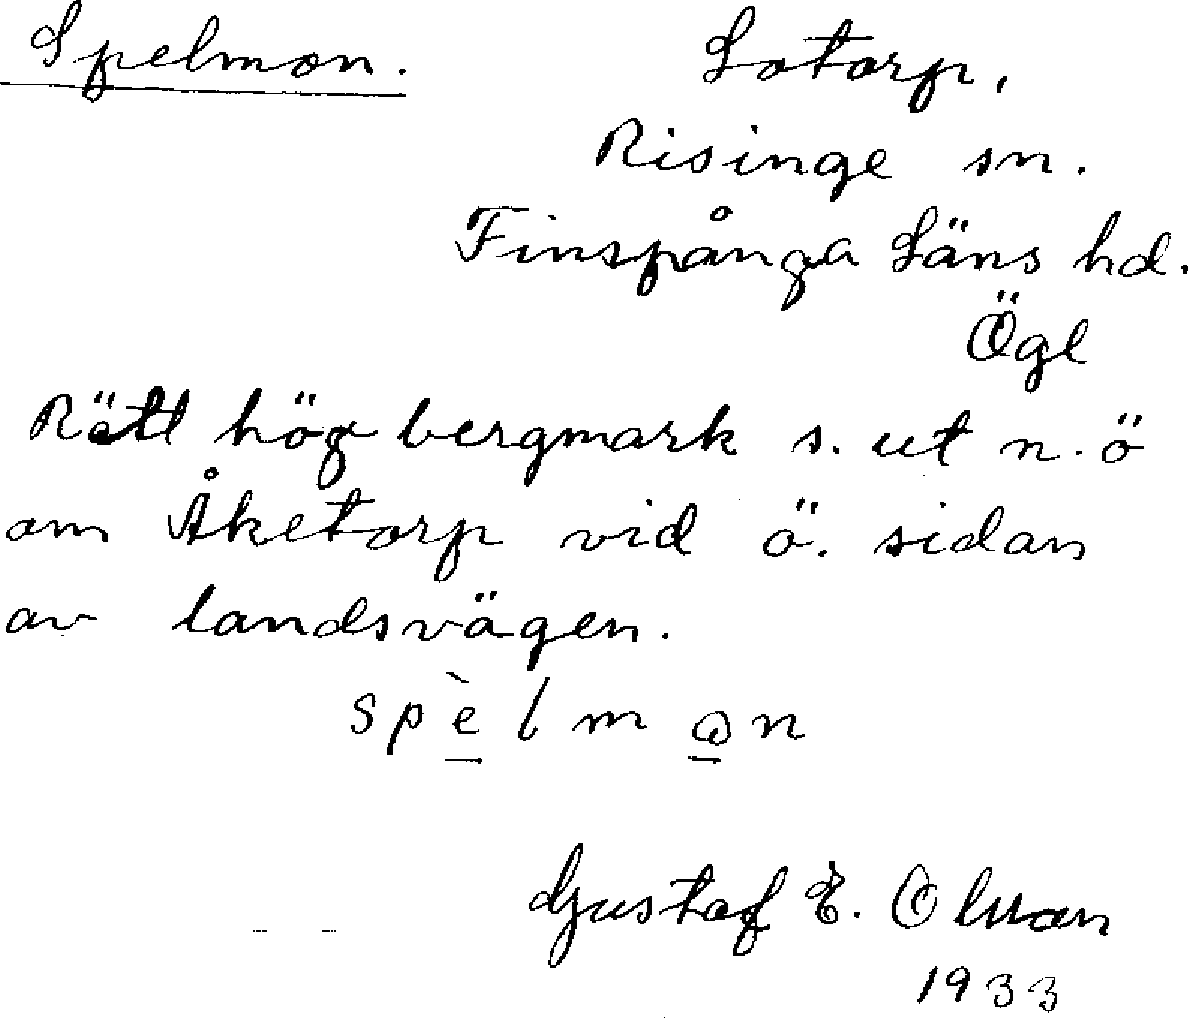 Spelmon. Lotorp,
Risinge sn.
Finspånga Läns hd.
Ögl
Rätt hög bergmark s. ut n. ö
om Åketorp vid ö. sidan
av landsvägen.
spèlmωn
Gustaf E. Olsson
1933